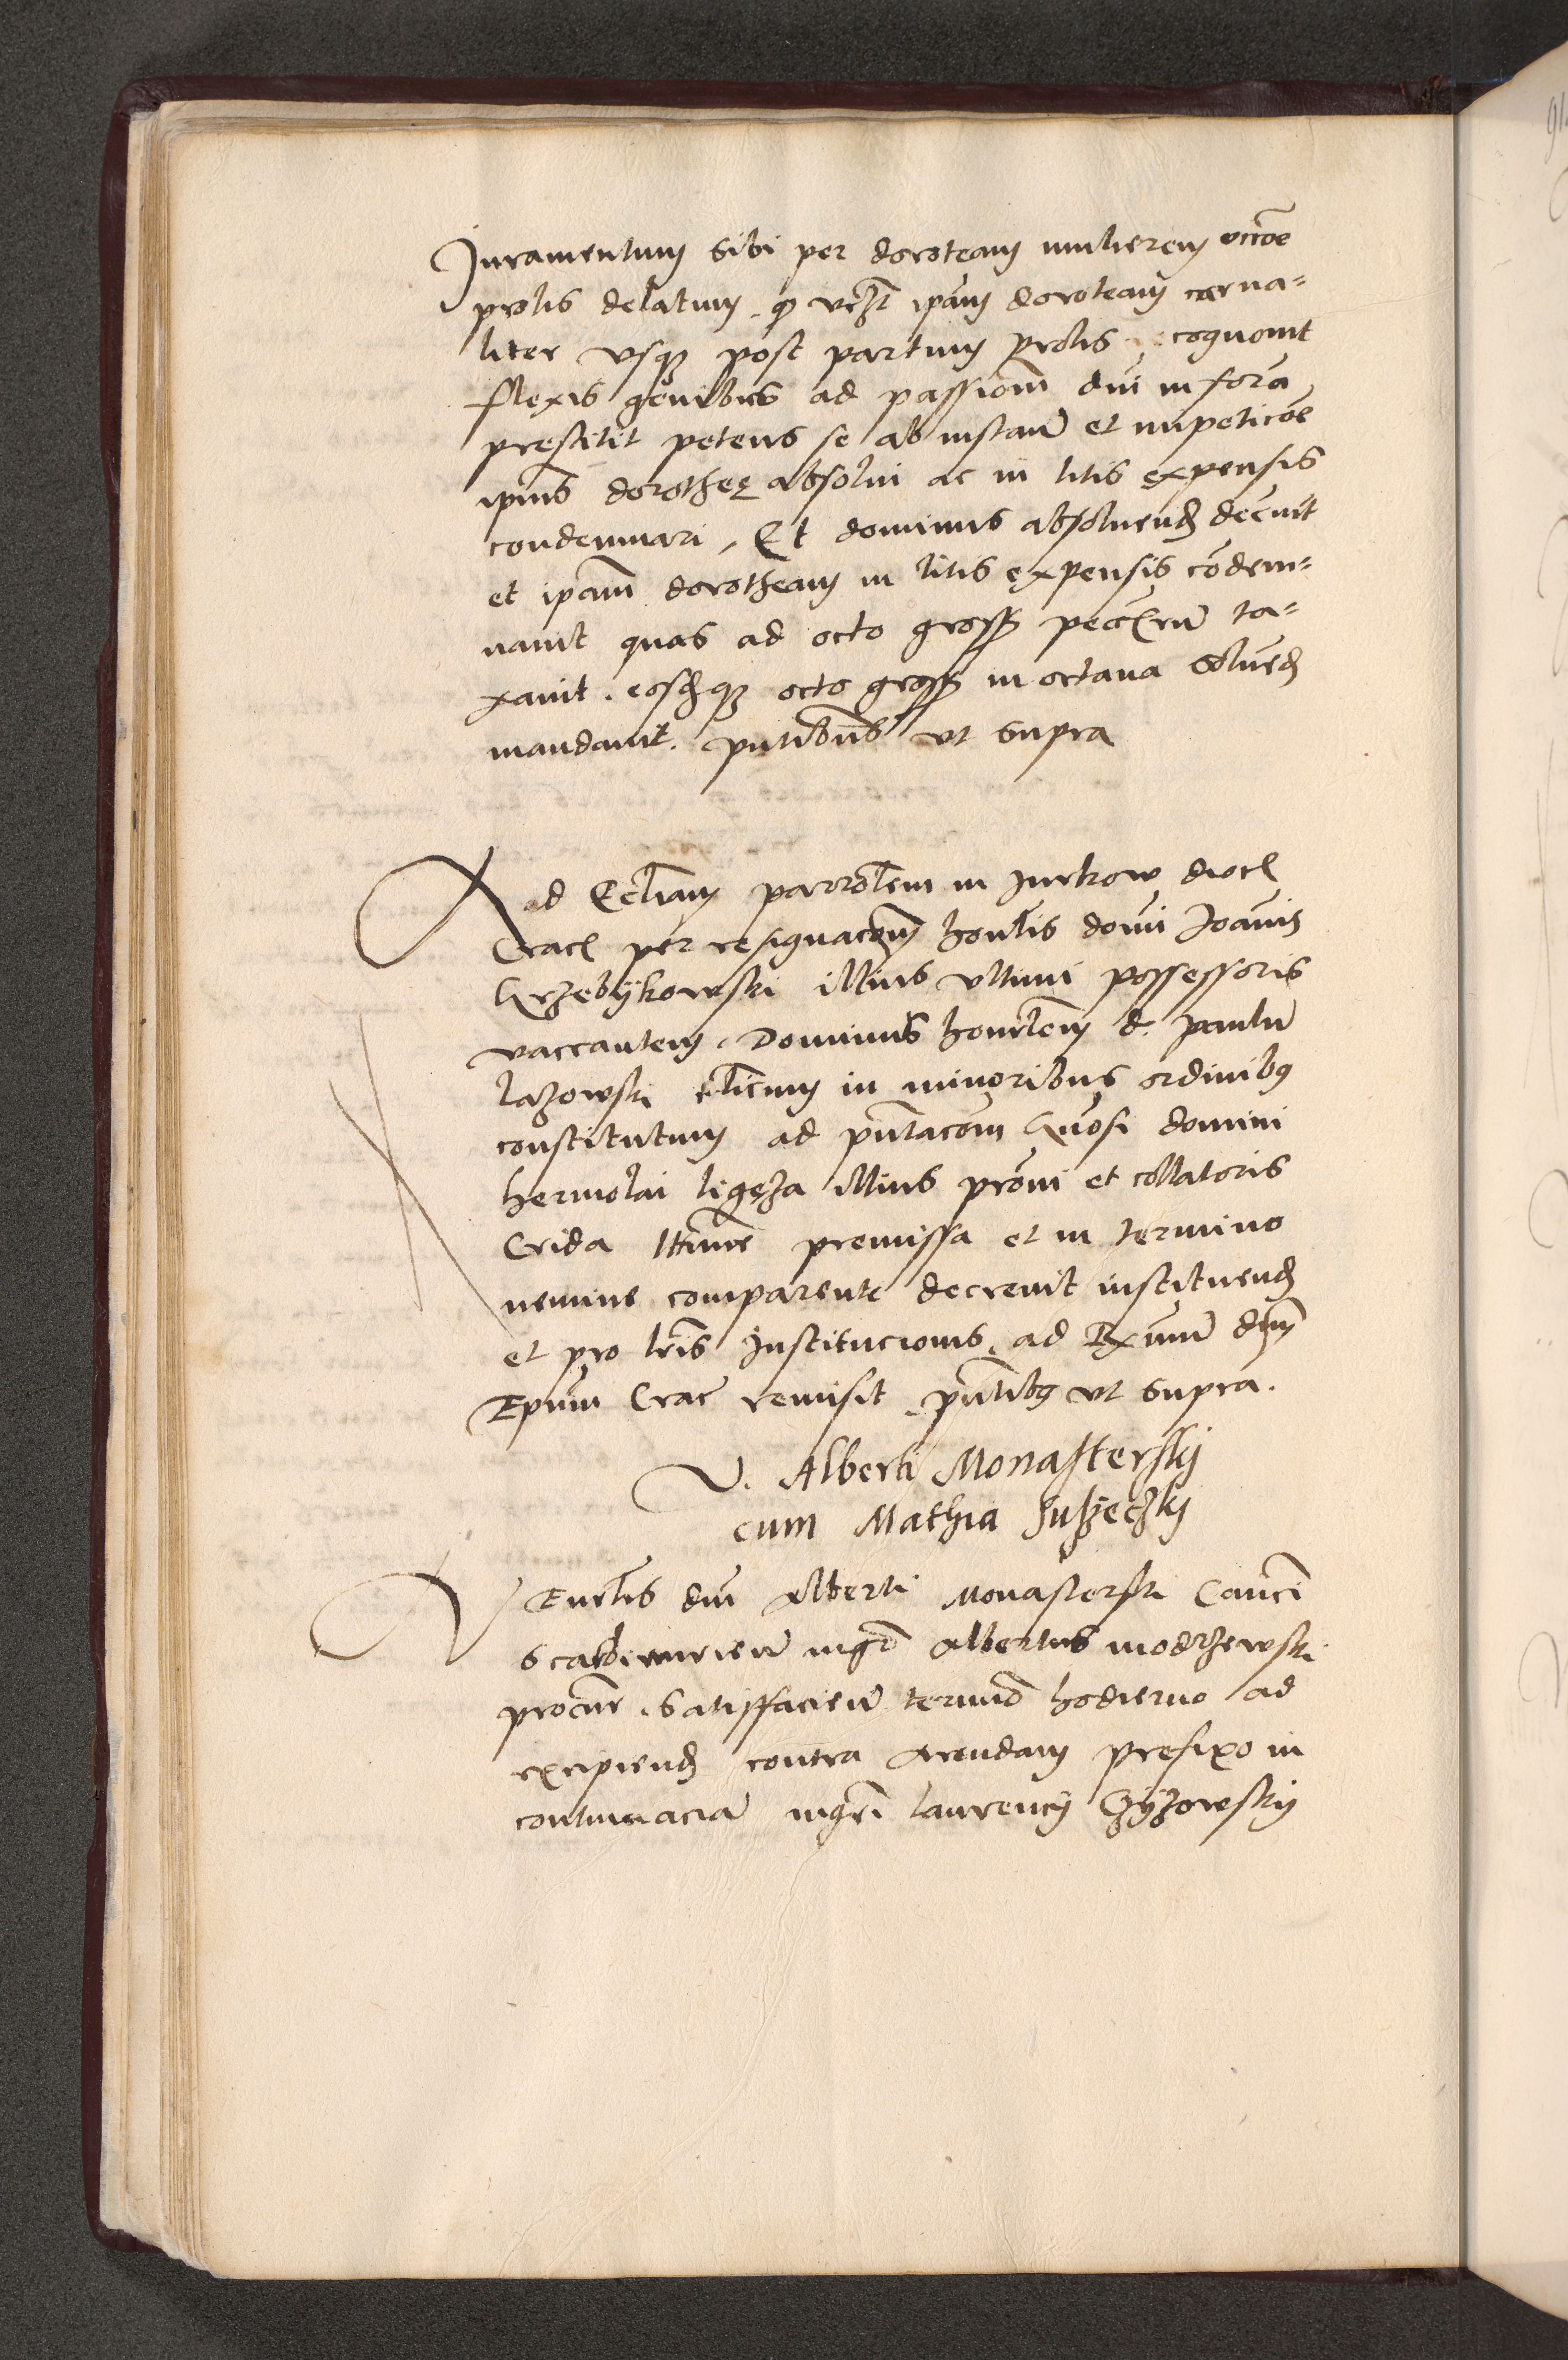 Juramentum sibi per doroteam mulierem occoe
prolis delatum . q vczt ipam doroteam carna=
liter vsq post partum prolis cognouit
flexis genibus ad passiom dni in forma
prestitit petens se ab instan et impeticoe
ipius dorothee absolui ac in litis expensis
condemnari , Et dominus absoluend decreuit
et ipam dorotheam in litis expensis codem=
nauit quas ad octo gross peccru ta=
xauit . eosdqz octo gross in octaua soluend
mandauit . pntibus vt supra
Ad Eccliam parrolem in Jurkow dioc
Crac per resignacom honlis domi Joanis
Krzebijkowski illius vltimi possessoris
vaccantem . Dominus honrlem d. paulu
lazowski clicum in minoribus ordinibq
constitutum ad pntacom Gnosi domini
hermolai ligeza illius proni et collatoris
Crida lttime premissa et in termino
nemine comparente decreuit instituend
et pro lris Institucionis ad Rxmum dnm
Epum Crac remisit . pntibq vt supra .
V. Alberti Monasterskij
cum Mathia
Venrlis dni Alberti Monasterski Canci
Scarbimirien mgr Albertus modrzewski
procur . Satisffacien termio hodierno ad
excipiend contra Arendam prefixo in
contumacia mgri laurencij Chijzowskij